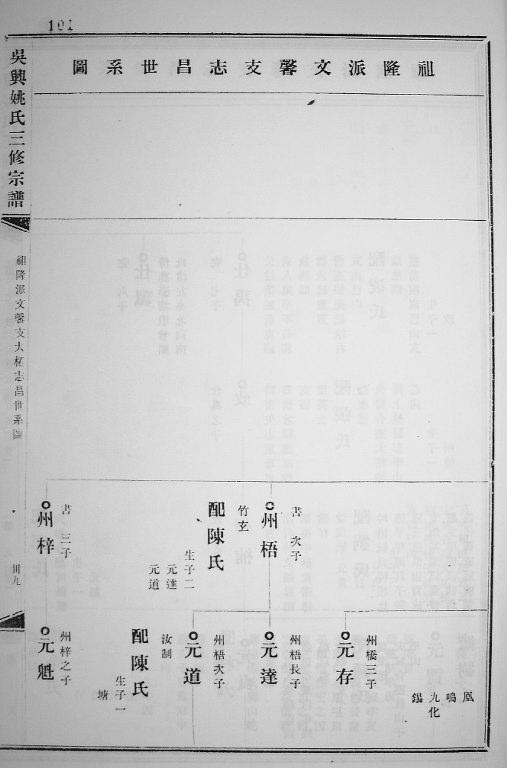 101
祖隆派文馨支志昌世系圖
吳興姚氏三修宗譜
祖隆派文馨支大椿志昌世系圖
卅九
書 次子
州梧
竹玄
配陳氏
生子二
元達
元道
書 三子
州梓
鳳
鳴
九化
錫
州橋三子
元存
州梧長子
元達
州梧次子
元道
汝制
配陳氏
生子一
塘
州梓之子
元魁